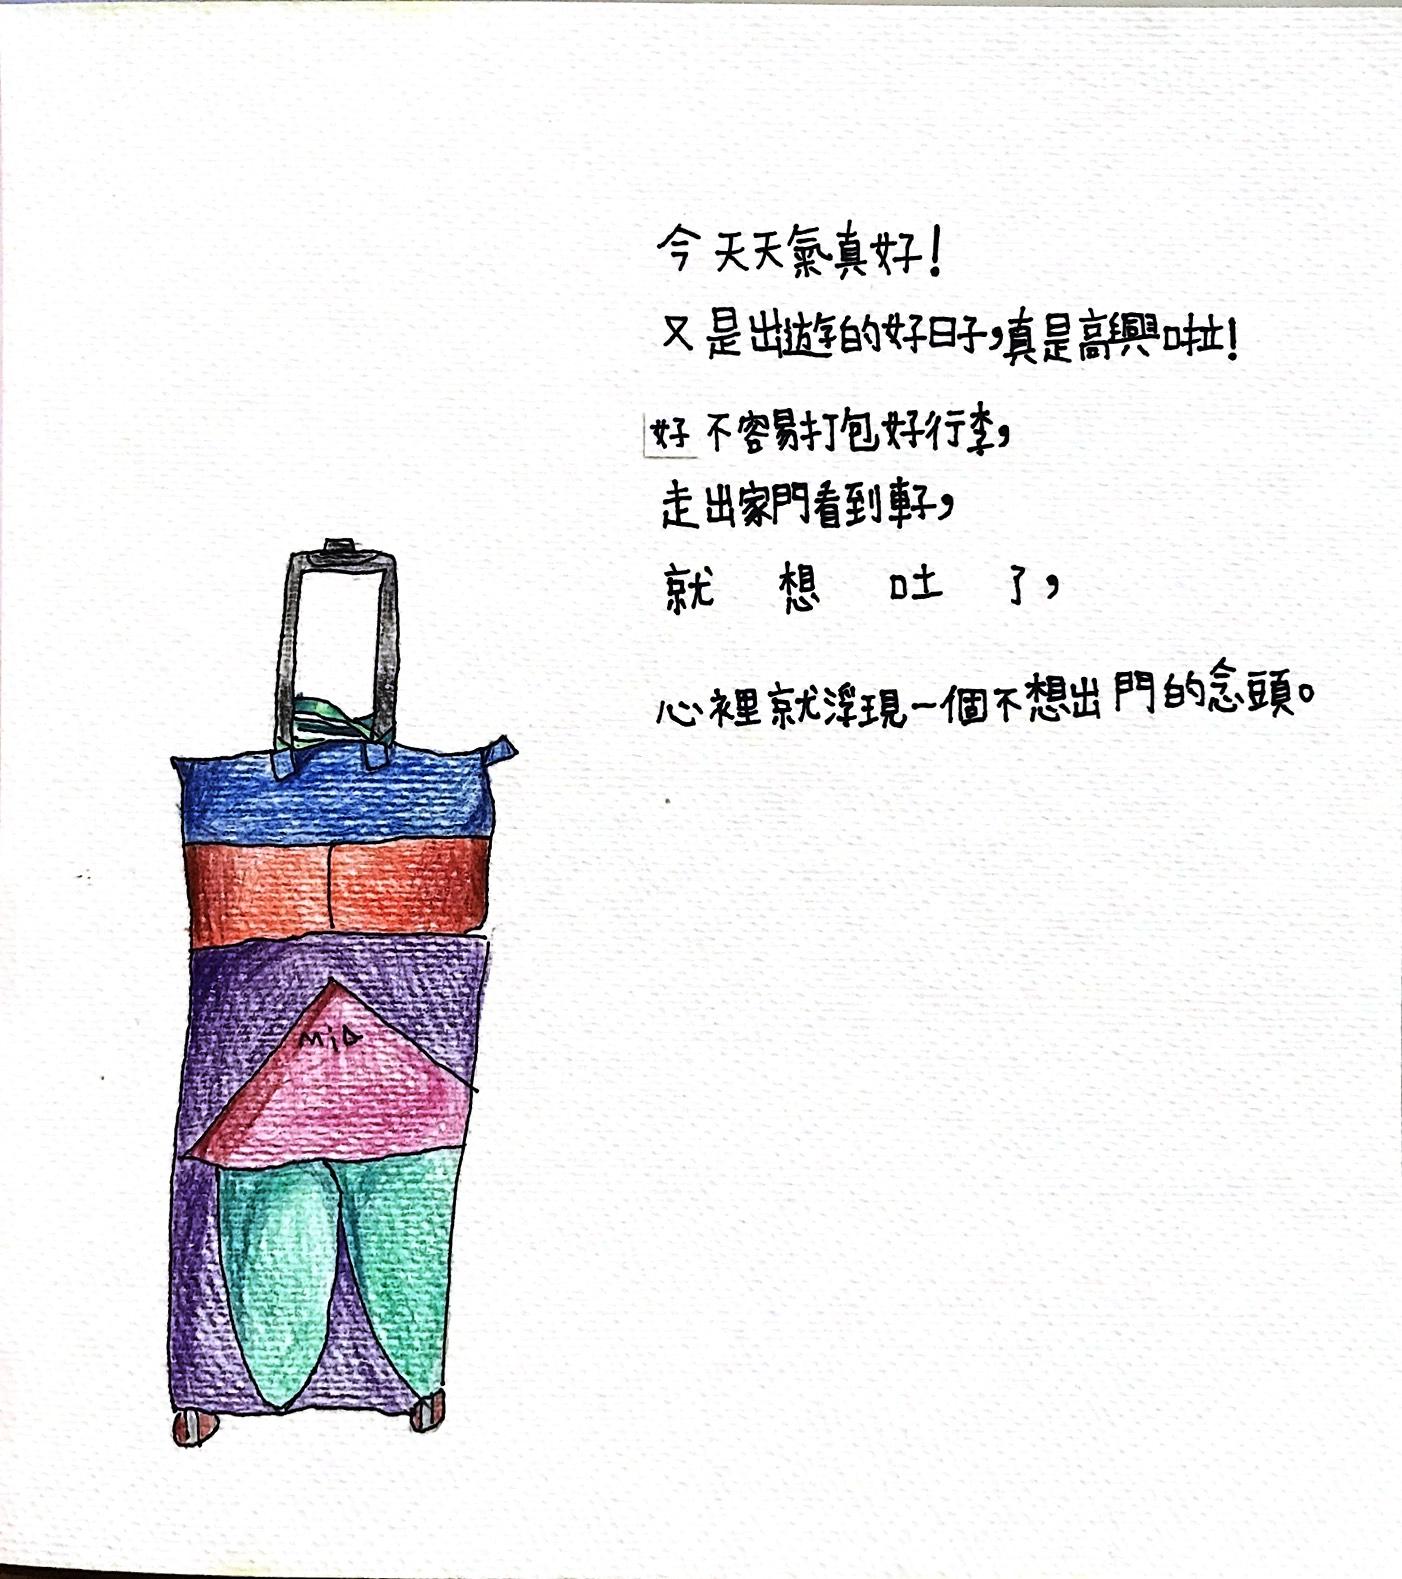 今天天氣真好!
又是出遊的好日子,真是高興啦!
好不容易打包好行李,
走出家門看到車子,
就 想 吐 了,
心裡就浮現一個不想出門的念頭。
Mia